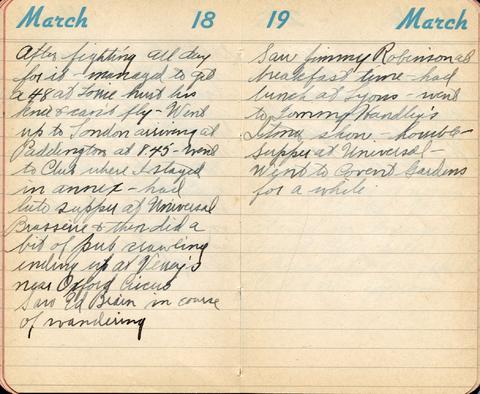 March 18
After fighting all day
for it - managed to get
a 48 as Tome hurt his
knee & can't fly - Went
up to London arriving at
Paddington at 8.45 - went
to Club where I stayed
in annex - had
late supper at Universal
Brasserie & then did a
bit of pub crawling
ending up at
near Oxford Circus
Saw Ed Brien in course
of wandering
19 March
Saw Jimmy Robinson at
breakfast time - had
lunch at Lyons - went
to Tommy Handley's
show - horrible -
Supper at Universal -
Went to Covent Gardens
for a while